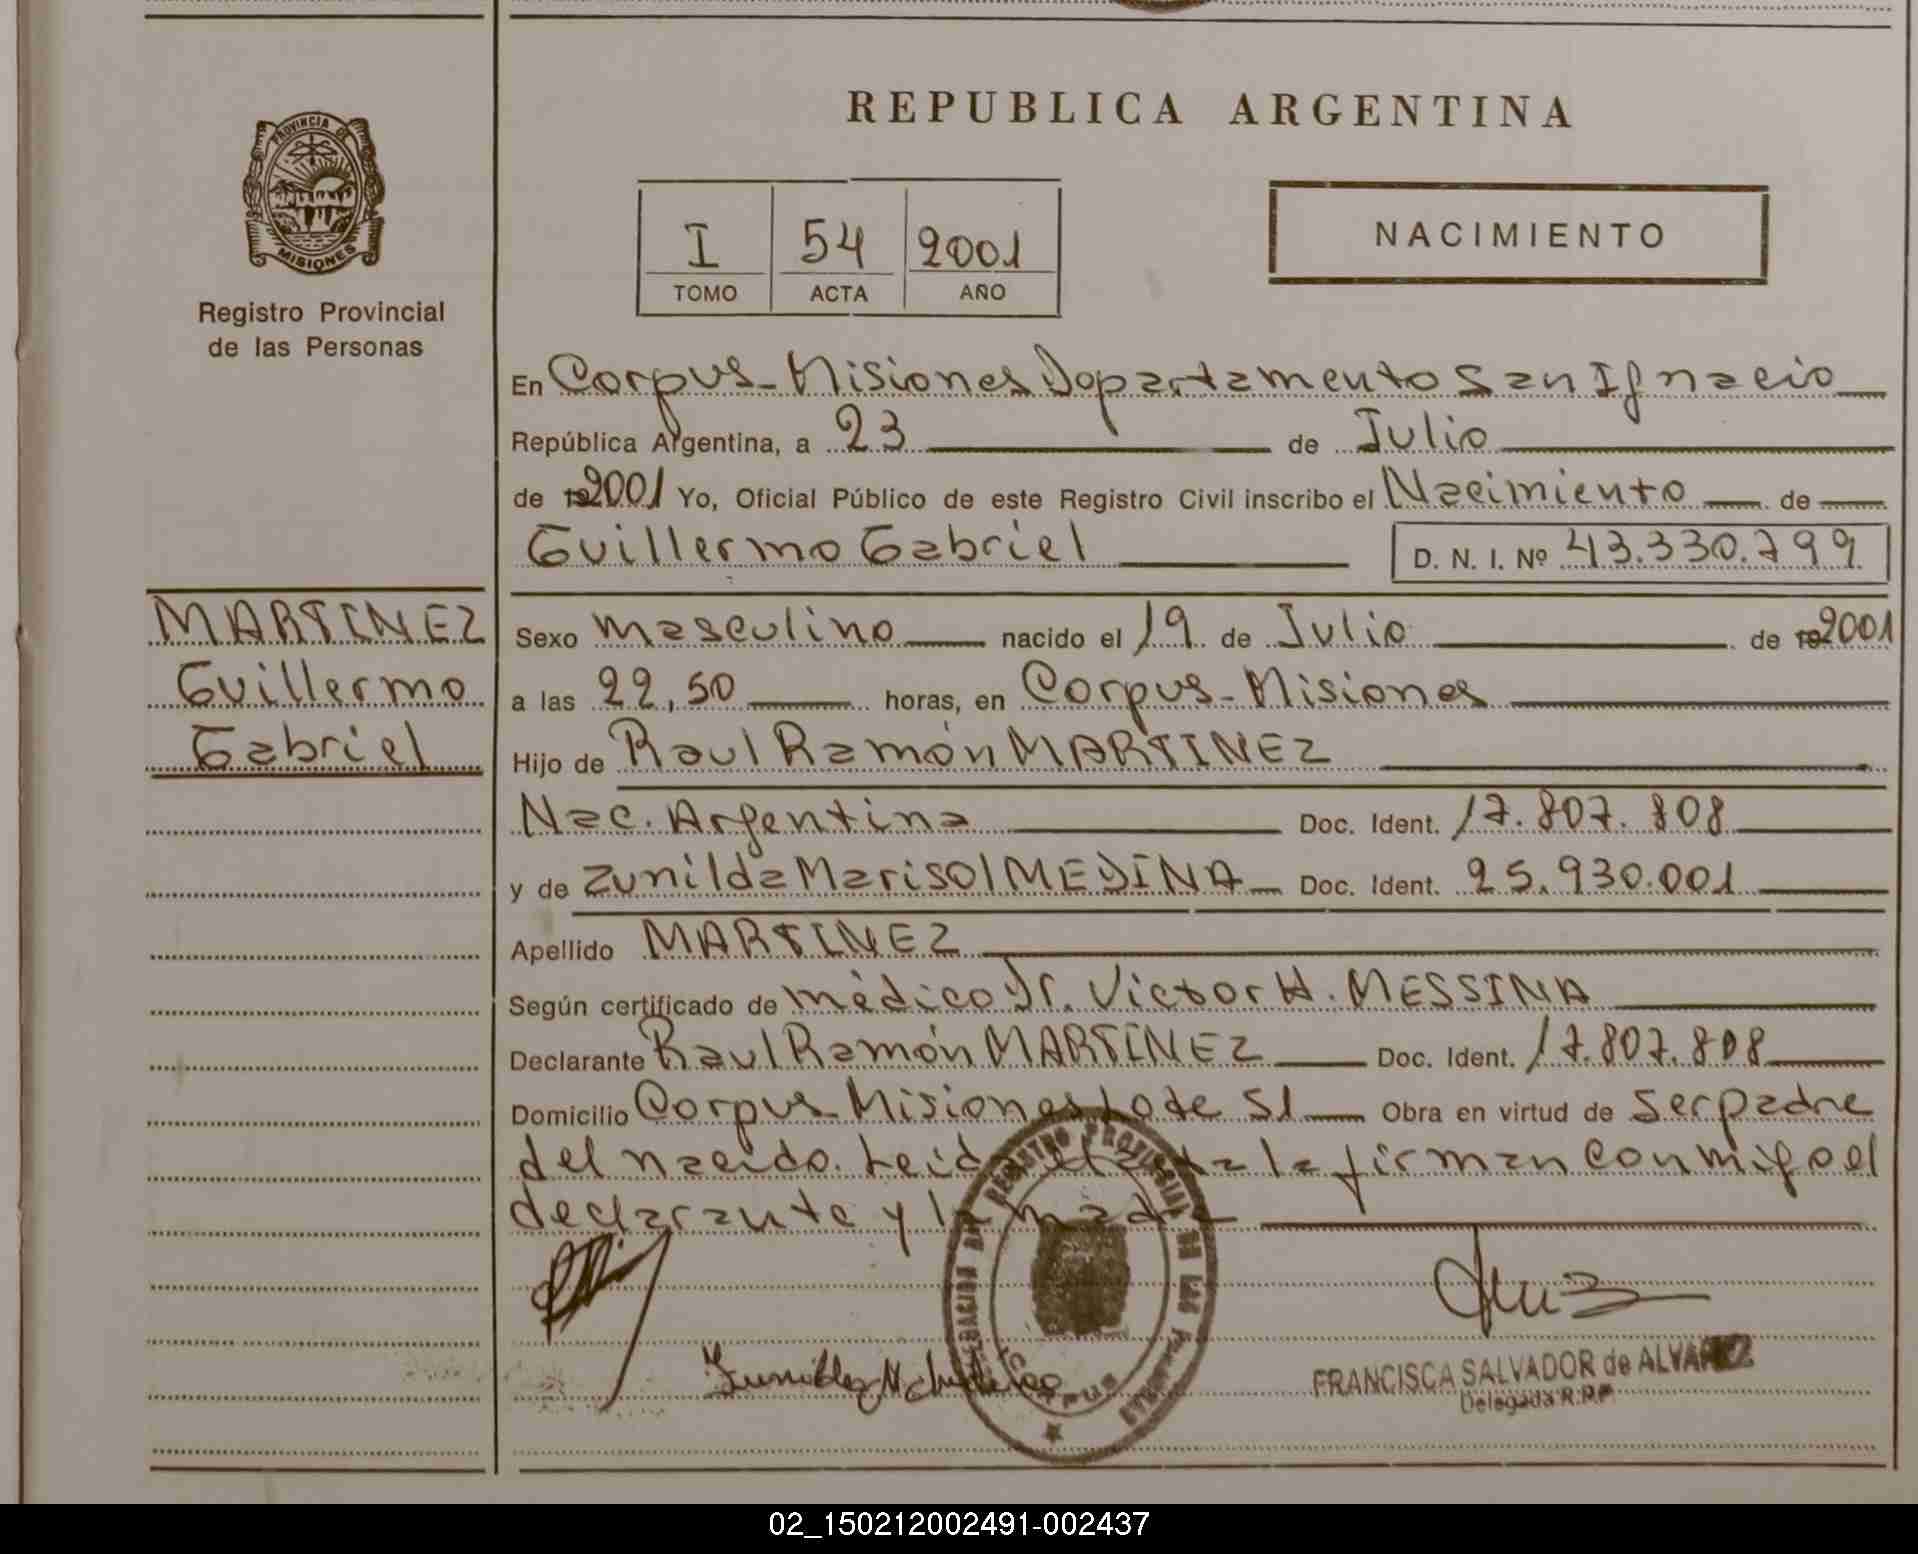 REPUBLICA ARGENTINA
PROVINCIA DE
MISIONES
Registro Provincial
de las Personas
I 54 2001
TOMO ACTA AÑO
NACIMIENTO
En Corpus-Misiones Departamento San Ignacio
República Argentina, a 23 de Julio
de 2001 Yo, Oficial Público de este Registro Civil inscribo el Nacimiento de
Guillermo Gabriel D. N. I. Nº 43.330.799
MARTINEZ
Guillermo
Gabriel
Sexo masculino nacido el 19 de Julio de 2001
a las 22,50 horas, en Corpus-Misiones
Hijo de Raul Ramón MARTINEZ
Nac. Argentina Doc. Ident. 17.807.808
y de Zunilda Marisol MEDINA Doc. Ident. 25.930.001
Apellido MARTINEZ
Según certificado de médico Dr. Victor H. MESSINA
Declarante Raul Ramón MARTINEZ Doc. Ident. 17.807.808
Domicilio Corpus Misiones Lote 51 Obra en virtud de ser padre
del nacido. Leida el acta la firman conmigo el
declarante y la madre
REGISTRO PROVINCIAL DE LAS PERSONAS
CORPUS
FRANCISCA SALVADOR de ALVAREZ
Delegada R.P.P.
02_150212002491-002437